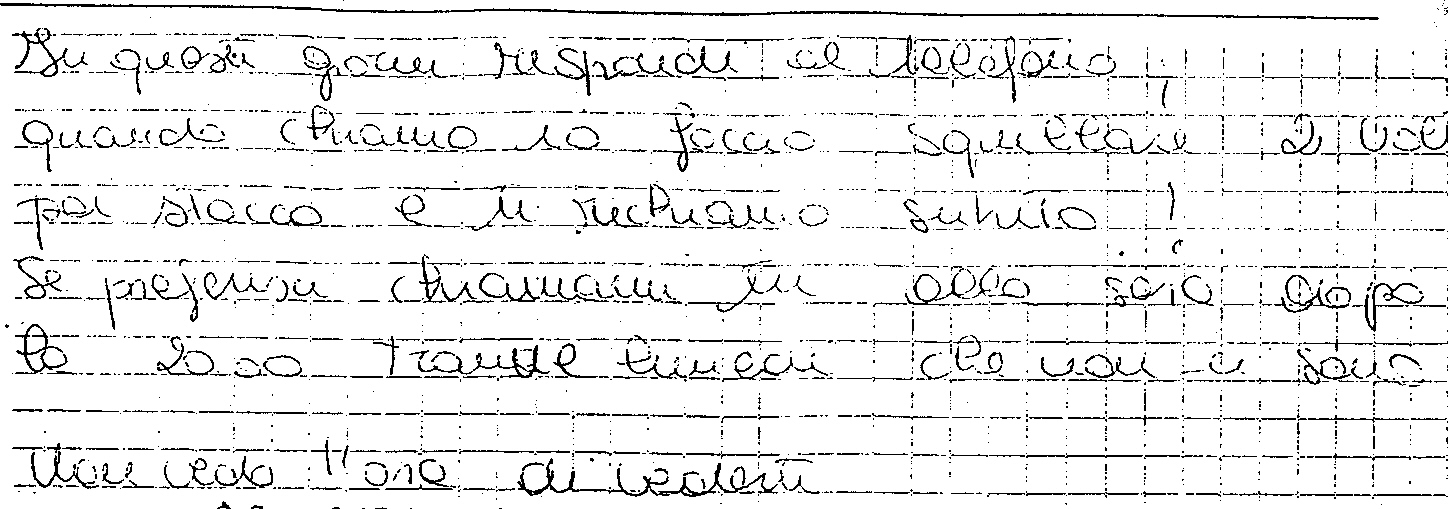 In questi giorni rispondi al telefono,
quando chiamo io faccio squillare 2 vol
poi stacco e ti richiamo subito!
Se preferisci chiamami tu alla sera dopo
le 20.00 tranne lunedì che non ci sono
Non vedo l'ora di vederti